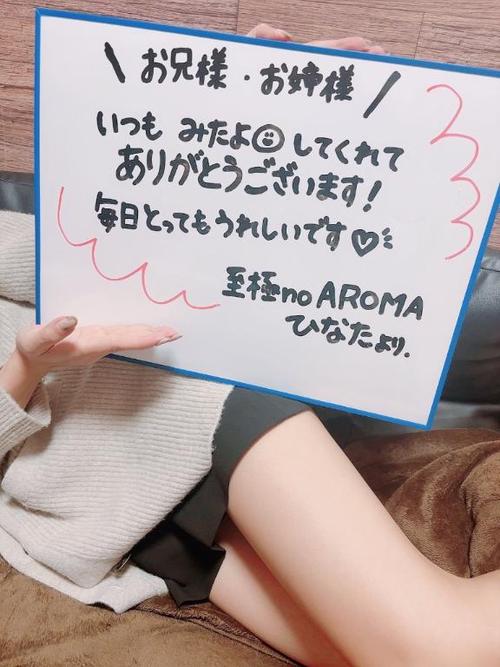 \ お兄様・お姉様 /
いつも みたよ☺してくれて
ありがとうございます!
毎日とってもうれしいです♡
至極no AROMA
ひなたより.